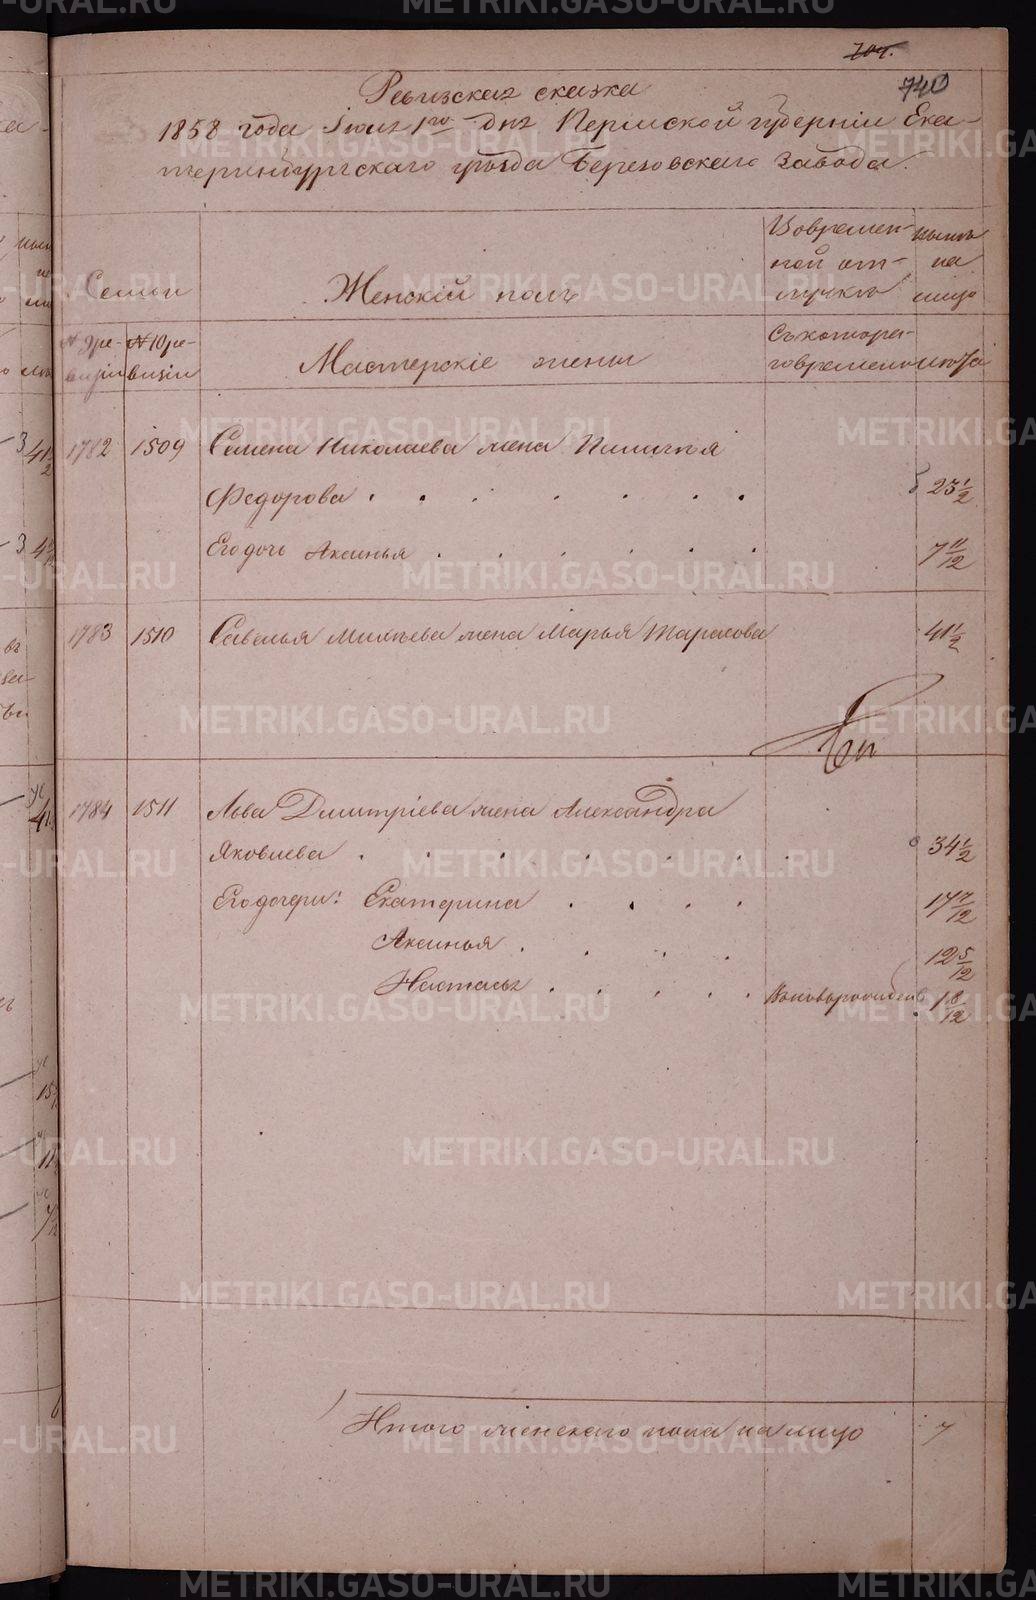 704.
740
Ревизская сказка
1858 года Iюня 1го дня Пермской губернiи Ека-
теринбургскаго уѣзда Березовскаго завода.
Семьи
Женскiй полъ
Во времен-
ной от-
лучкѣ
ныне
на
лицо
№ 9 ре-
визiи
№ 10 ре-
визiи
Мастерскiе жены
Съ котора-
го времени
лѣта
1782 1509 Семена Николаева жена
Федорова . . . . . . . 23 1/2
Его дочь Аксинья . . . . . . 7 11/12
1783 1510 Савелья жена Марья Тарасова 41 1/2
1784 1511 Льва Дмитрiева жена Александра
Яковлева . . . . . . . 34 1/2
Его дочери: Екатерина . . . . 17 7/12
Аксинья . . . . 12 5/12
Настасья . . . . . 1 8/12
Итого женскаго пола на лицо 7
METRIKI.GASO-URAL.RU